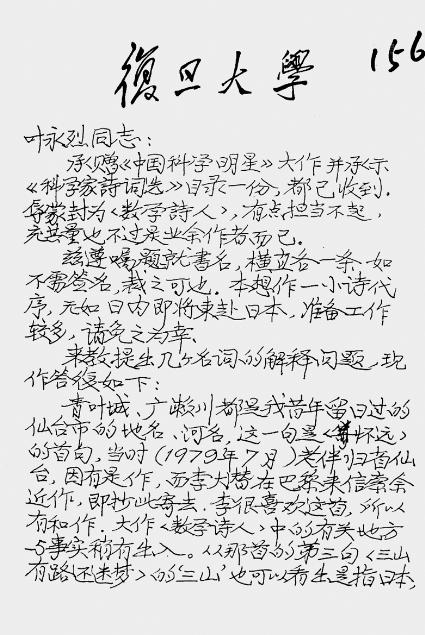 復旦大學
156
叶永烈同志：
承赐《中国科学明星》大作并承示
《科学家詩词选》目录一份，都已收到．
辱蒙封为《数学詩人》，有点担当不起，
充其量也不过是业余作者而已．
兹遵嘱题就書名，橫直各一条，如
不需签名，裁之可也．本想作一小诗代
序，无如日内即将東赴日本，准备工作
较多，请免之为幸．
来教提出几个名词的解释问题，现
作答復如下：
青叶城、广濑川都是我昔年留日过的
仙台市的地名、河名，这一句是《怀远》
的首句，当时（1979年7月）老伴归省仙
台，因有是作，而李大替在巴黎来信索余
近作，即抄此寄去．李很喜欢这首，所以
有和作．大作《数学诗人》中的有关地方
与事实稍有出入。从那首的第三句《三山
有路还迷梦》的'三山'也可以看出是指日本，